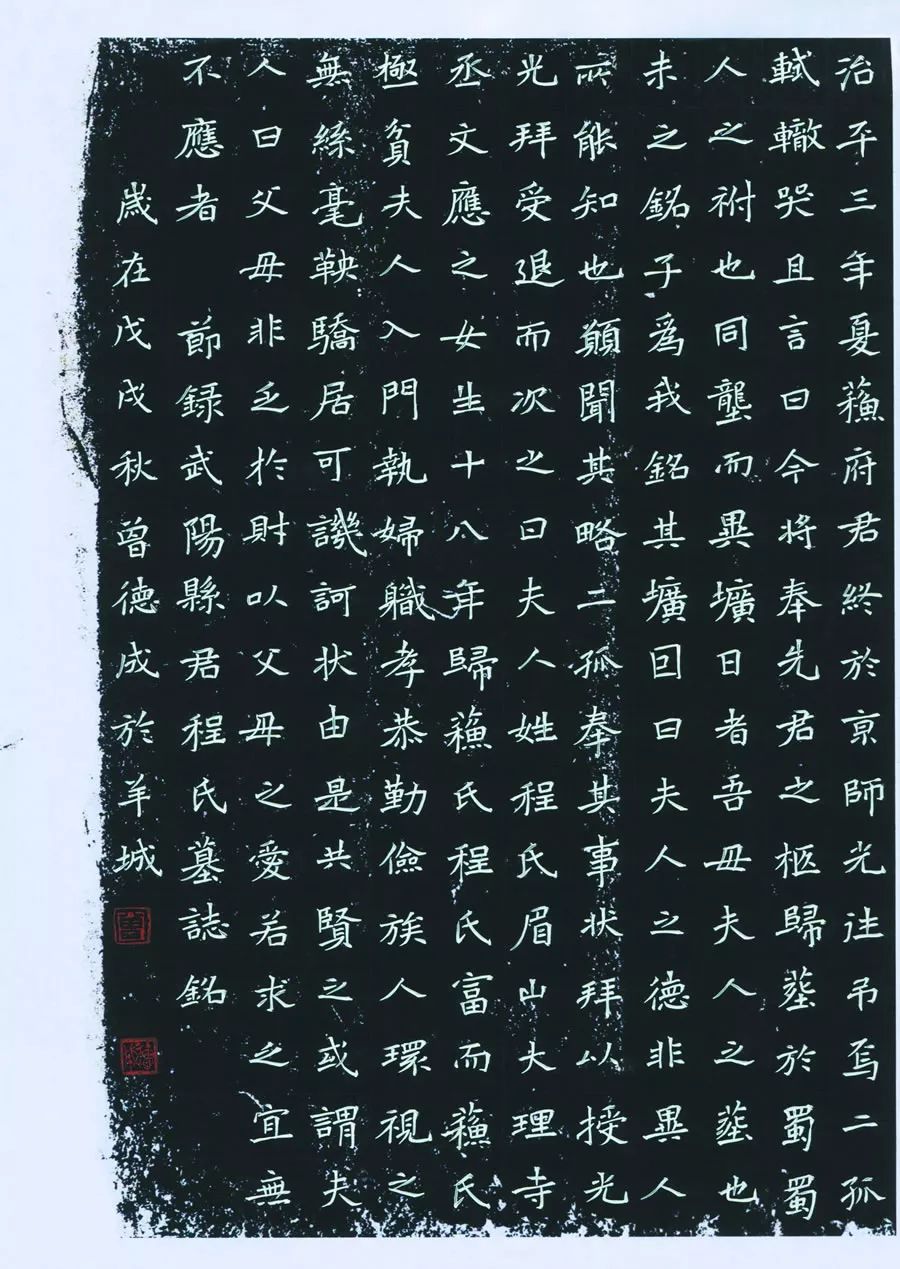 治平三年夏蘓府君終於京師光往弔焉二孤
軾轍哭且言曰今將奉先君之柩歸塟於蜀蜀
人之祔也同壟而異壙日者吾母夫人之塟也
未之銘子為我銘其壙回曰夫人之德非異人
所能知也願聞其略二孤奉其事状拜以授光
光拜受退而次之曰夫人姓程氏眉山大理寺
丞文應之女生十八年歸蘓氏程氏富而蘓氏
極貧夫人入門執婦職孝恭勤儉族人環視之
無絲毫鞅驕居可譏訶状由是共賢之或謂夫
人曰父母非乏於財以父母之愛若求之宜無
不應者 節録武陽縣君程氏墓誌銘
歲在戊戌秋曾德成於羊城